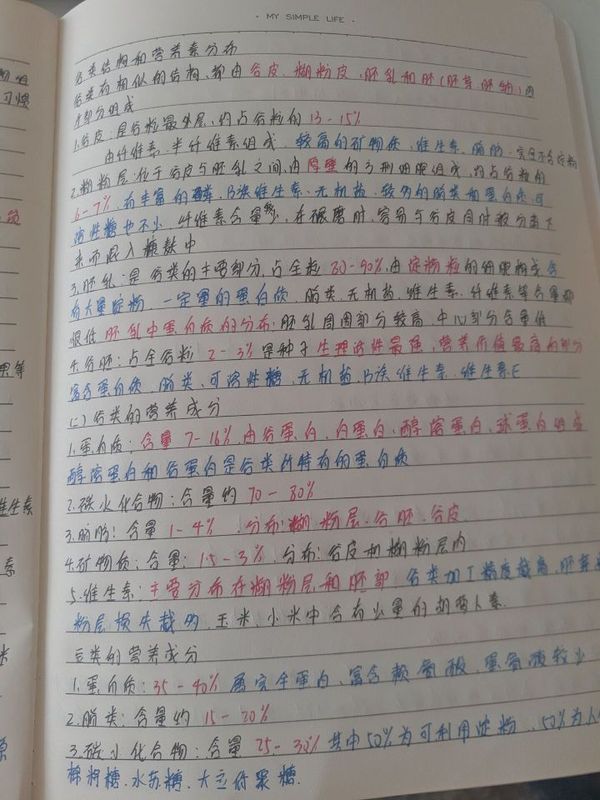 · MY SIMPLE LIFE ·
谷类结构和营养素分布
谷类有相似的结构，都由谷皮、糊粉皮、胚乳和胚(胚芽、胚轴)四
部分组成
1.谷皮：是谷粒最外层，约占谷粒的13-15%
由纤维素、半纤维素组成，较高的矿物质、维生素、脂肪，完全不含淀粉
2.糊粉层：位于谷皮与胚乳之间，由厚壁的方形细胞组成，约占谷粒的
6-7%，有丰富的磷，B族维生素、无机盐，较多的脂类和蛋白质，可
溶性糖也不少，纤维素含量多，在碾磨时，容易与谷皮同时被分离下
来而混入糠麸中
3.胚乳：是谷类的主要部分，占全粒80-90%，由淀粉粒的细胞构成，含
有大量淀粉，一定量的蛋白质，脂类、无机盐、维生素、纤维素等含量都
很低 胚乳中蛋白质的分布：胚乳周围部分较高，中心部分含量低
4.谷胚：占全谷粒2-3%是种子生理活性最强，营养价值最高的部分
富含蛋白质，脂类，可溶性糖，无机盐，B族维生素，维生素E
(二)谷类的营养成分
1.蛋白质：含量7-16%，由谷蛋白、白蛋白、醇溶蛋白、球蛋白组成
醇溶蛋白和谷蛋白是谷类所特有的蛋白质
2.碳水化合物：含量约70-80%
3.脂肪：含量1-4%，分布：糊粉层、谷胚、谷皮
4.矿物质：含量：1.5-3%，分布：谷皮和糊粉层内
5.维生素：主要分布在糊粉层和胚部，谷类加工精度越高，胚芽
粉层损失越多，玉米、小米中含有少量的胡萝卜素
豆类的营养成分
1.蛋白质：35-40% 属完全蛋白，富含赖氨酸，蛋氨酸较少
2.脂类：含量约15-20%
3.碳水化合物：含量25-30% 其中50%为可利用淀粉，50%为人
棉籽糖、水苏糖、大豆低聚糖.
习惯
维生素
素